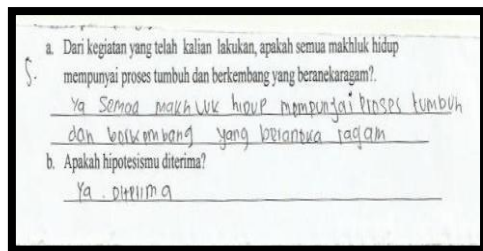 a. Dari kegiatan yang telah kalian lakukan, apakah semua makhluk hidup
5. mempunyai proses tumbuh dan berkembang yang beranekaragam?.
Ya Semoa makhluk hidup mempunyai proses tumbuh
dan berkembang yang beraneka ragam
b. Apakah hipotesismu diterima?
Ya. Diterima